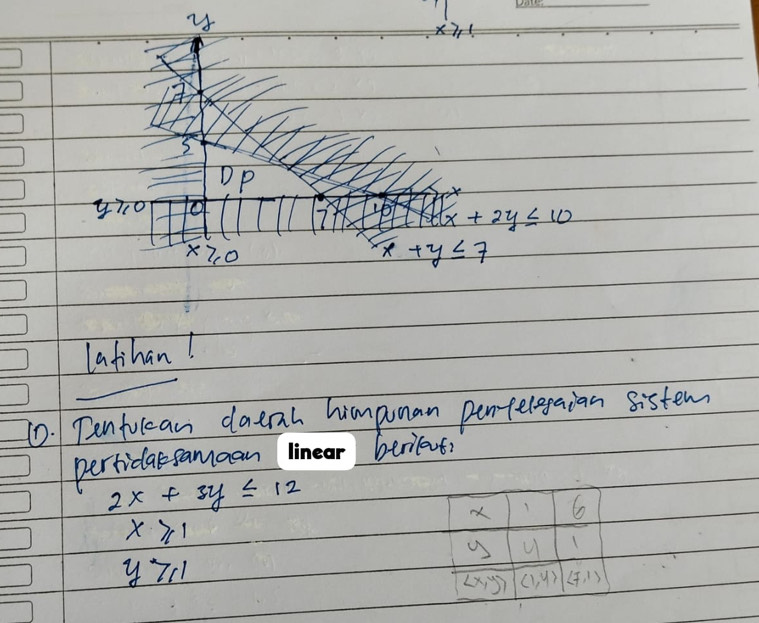 Date:
x ≥ 1
y
7
5
Dp
y ≥ 0 0 7 10 x
x + 2y ≤ 10
x ≥ 0
x + y ≤ 7
latihan !
1). Tentukan daerah himpunan penyelesaian sistem
pertidaksamaan linear berikut:
2x + 3y ≤ 12
x ≥ 1
y ≥ 1
x 1 6
y 4 1
(x,y) (1,4) (7,1)